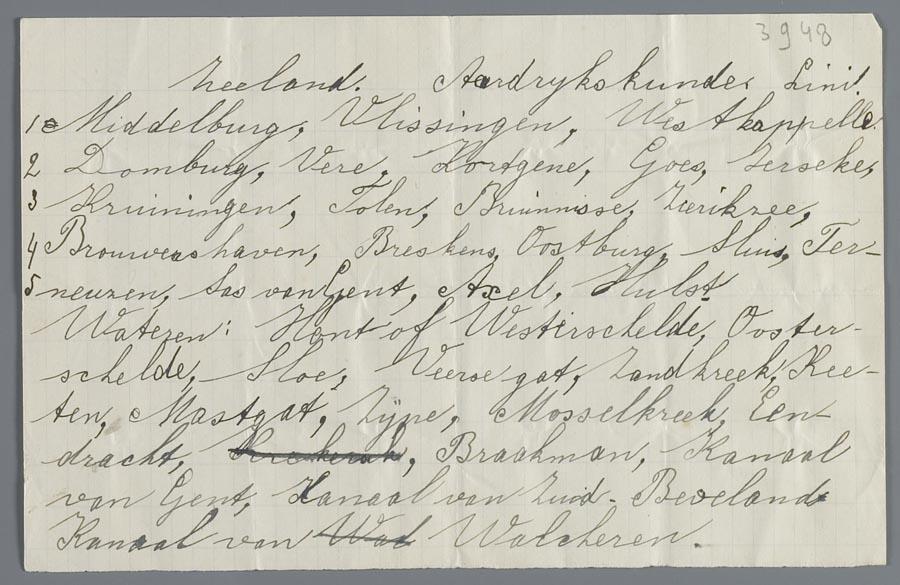 3948
Zeeland. Aardrykskunde.
1e Middelburg, Vlissingen, Westkappelle.
2 Domburg, Vere, Kortgene, Goes, Ierseke,
3 Kruiningen, Tolen, Bruinnisse, Zierikzee,
4 Brouwershaven, Breskens, Oostburg, Sluis, Ter-
5 neuzen, Sas van Gent, Axel, Hulst
Wateren: Hont of Westerschelde, Ooster-
schelde, Sloe, Veerse gat, Zandkreek, Kee-
ten, Mastgat, Zijpe, Mosselkreek, Een-
dracht, Braakman, Kanaal
van Gent, Kanaal van Zuid-Beveland
Kanaal van Wal Walcheren.